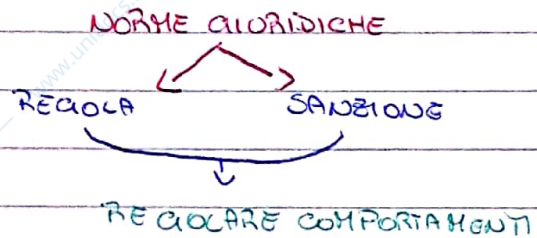 NORME GIURIDICHE
REGOLA SANZIONE
REGOLARE COMPORTAMENTI